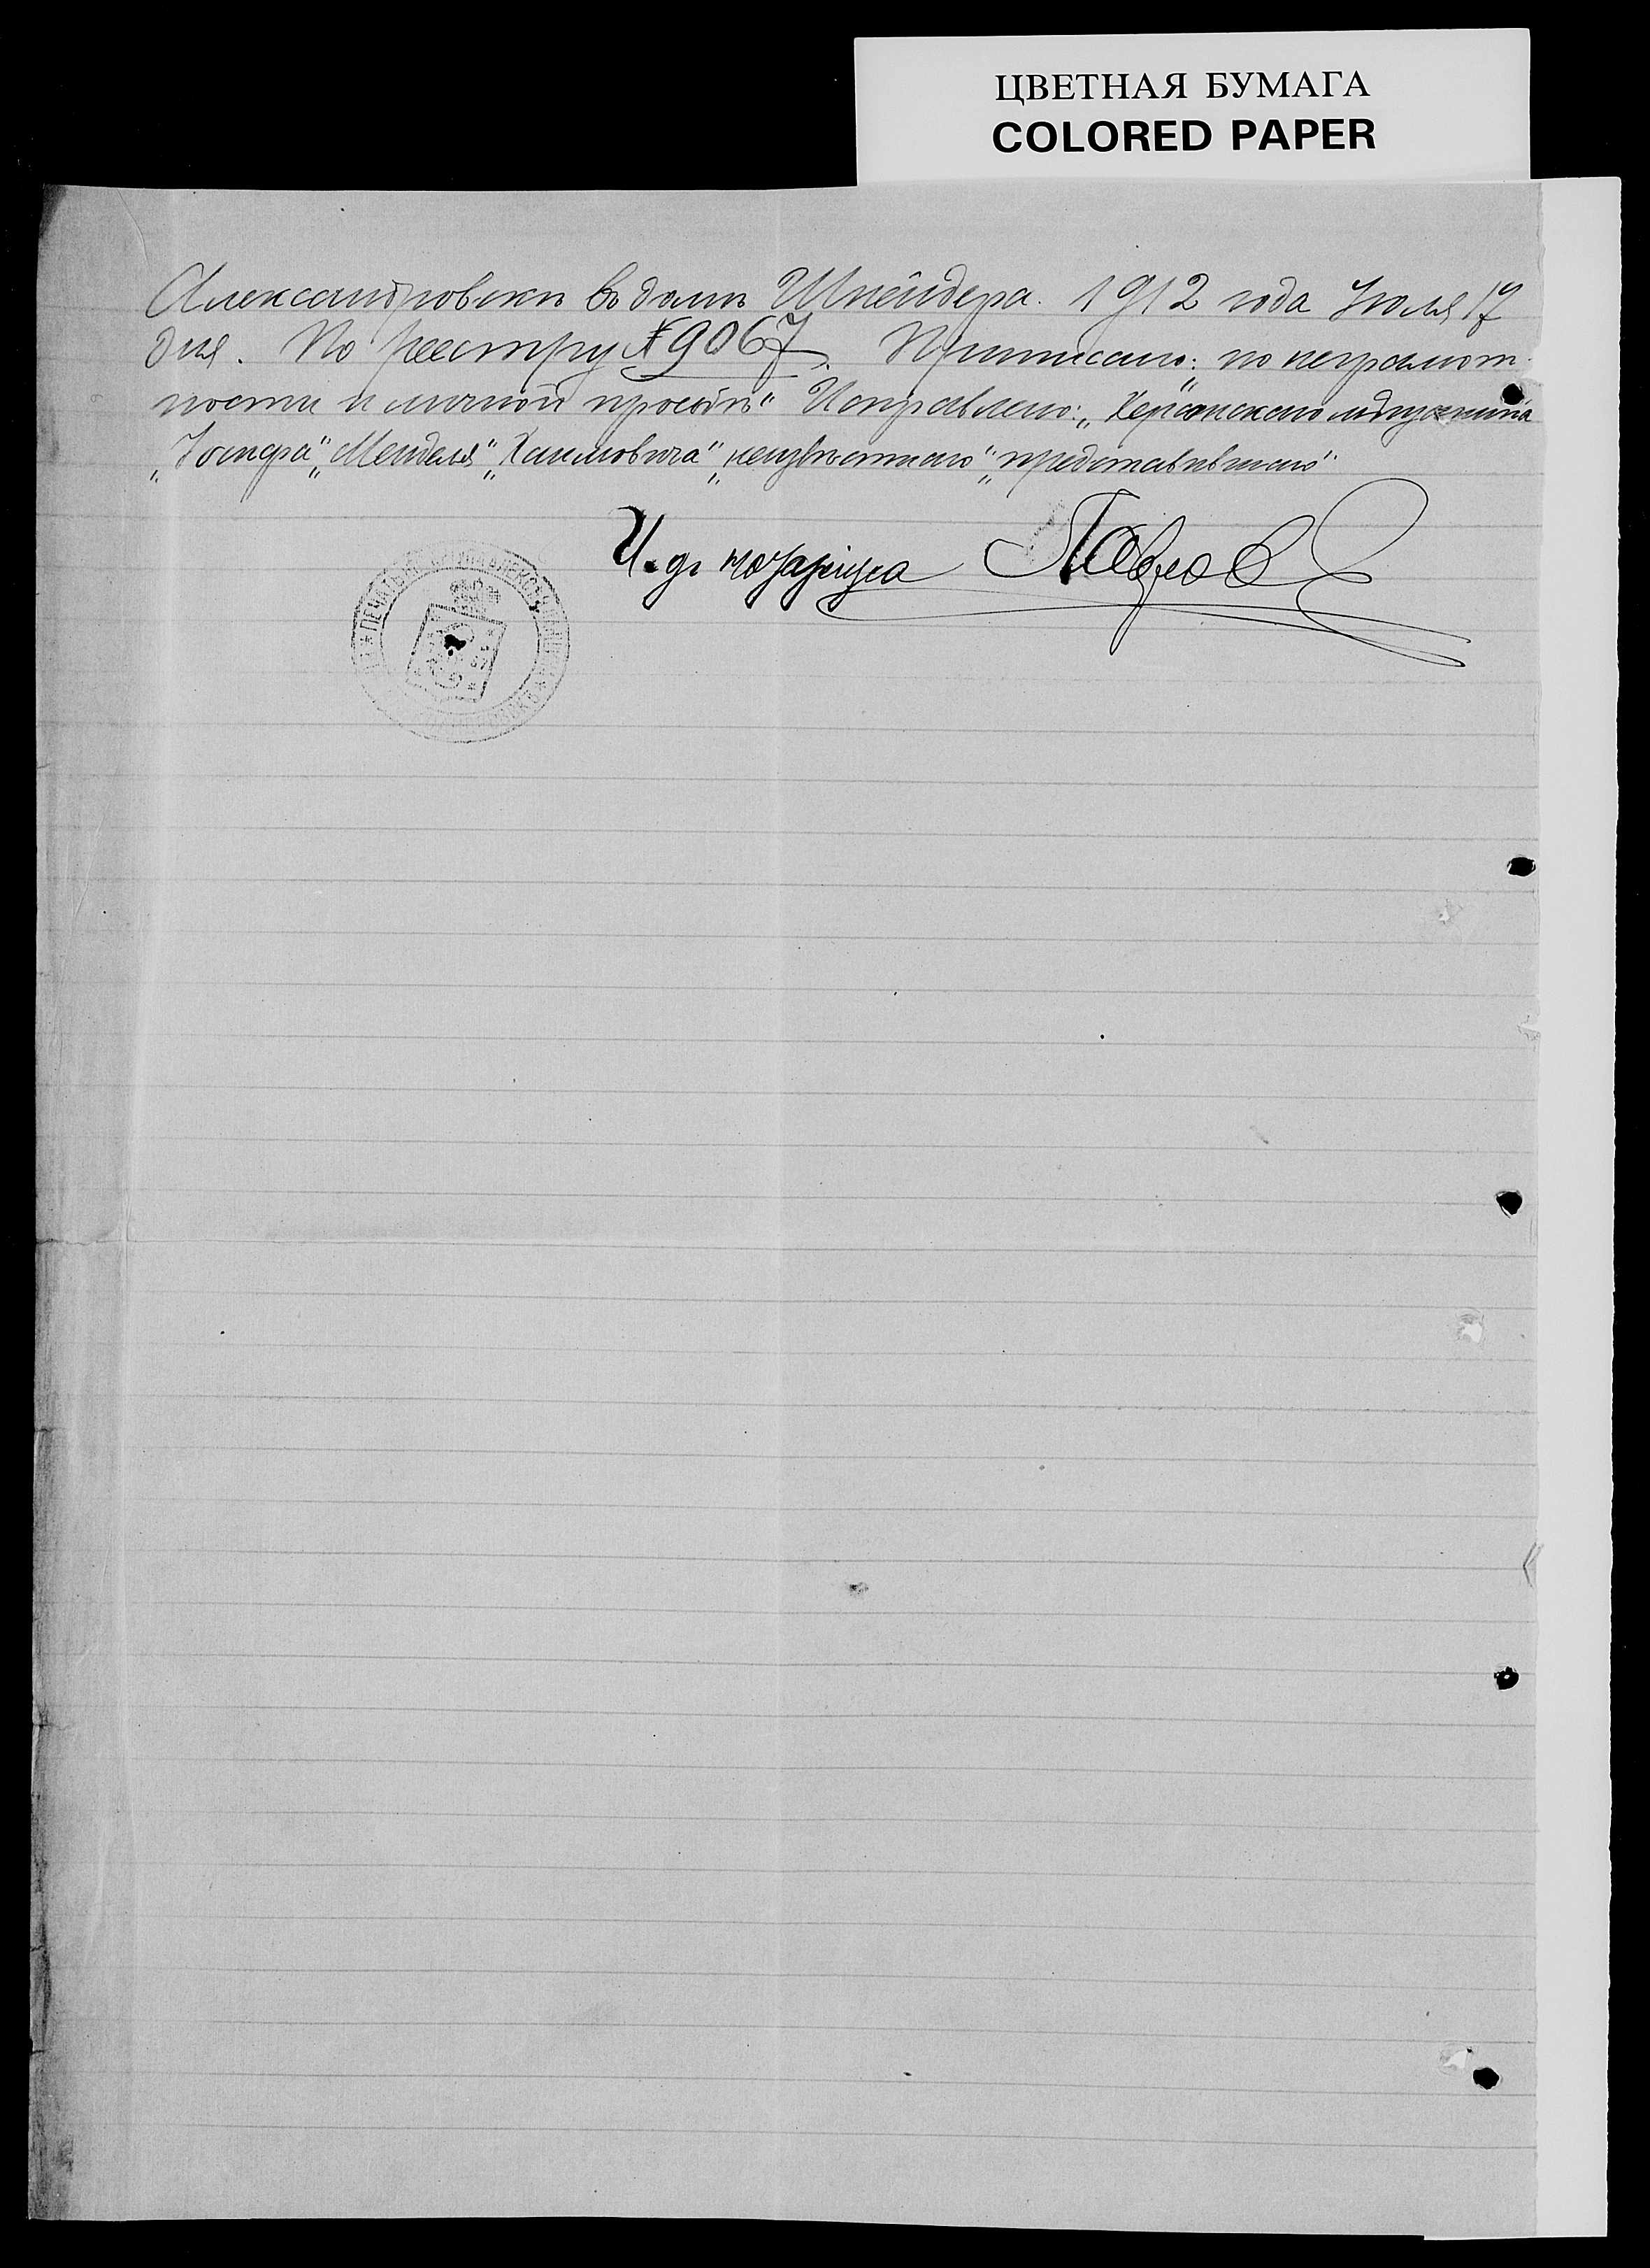 ЦВЕТНАЯ БУМАГА
COLORED PAPER
Александровскѣ въ домѣ Шнейдера. 1912 года Iюля 17
дня. По реестру № 9067. Приписано: „по неграмот-
ности и личной просьбѣ" Исправлено: „Херсонскаго
„Iосифа" „Менделя" „Хаимовича" „неизвѣстнаго" „представившаго"
И. д. нотарiуса Павлов
ПЕЧАТЬ